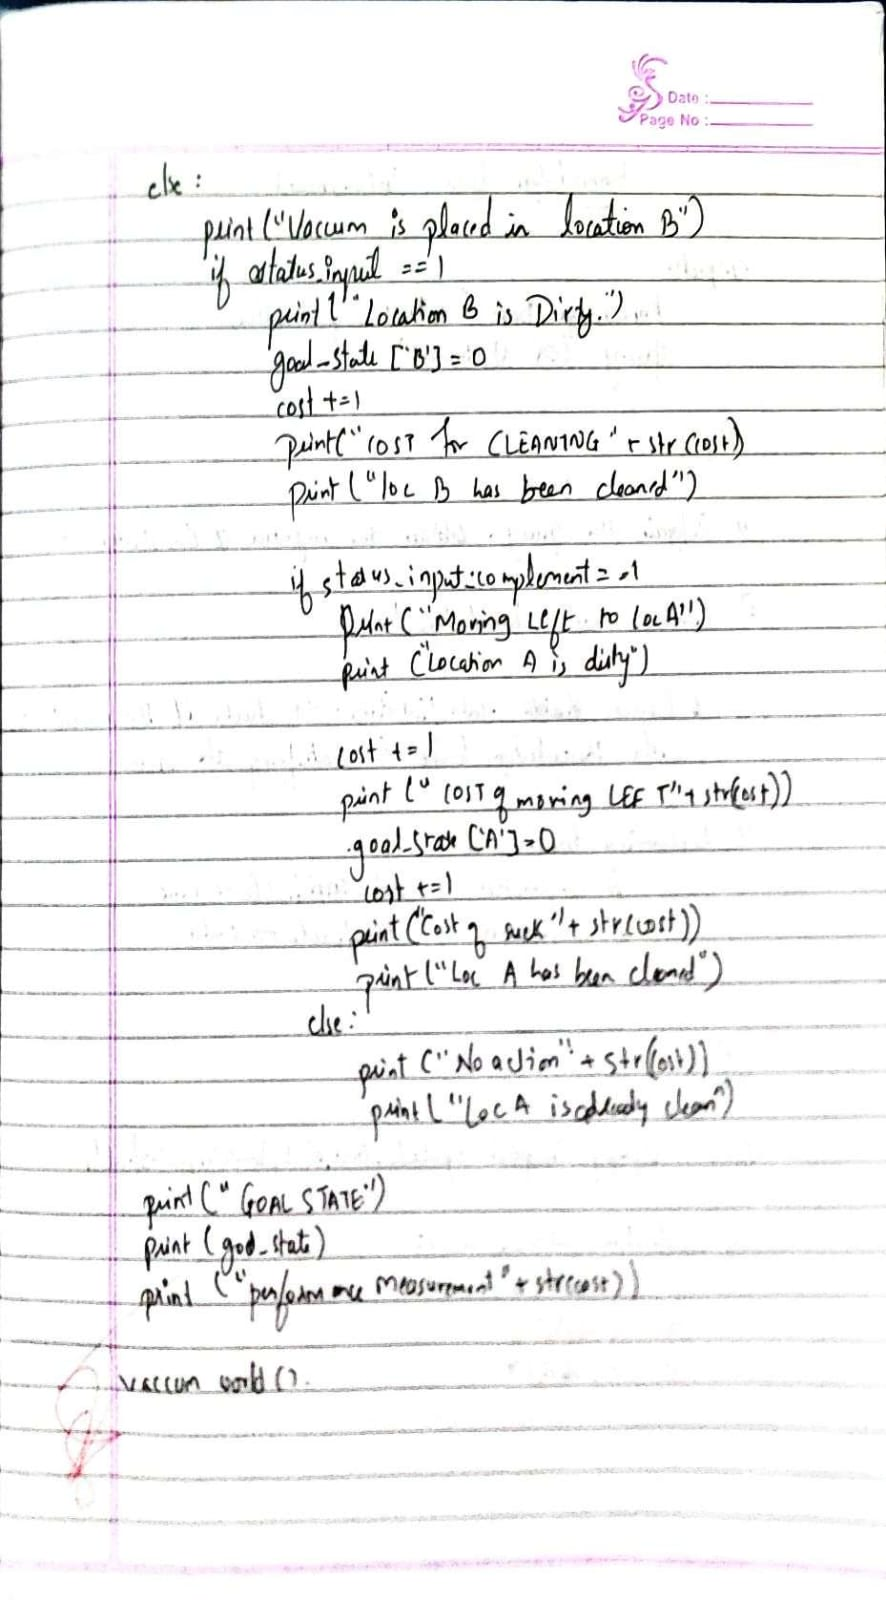 Date :
Page No :
else :
print ("Vaccum is placed in location B")
if status_input == 1
print ("Location B is Dirty.")
goal_state ['B'] = 0
cost += 1
print(" COST for CLEANING " + str (cost)
print ("loc B has been cleaned")
if status_input_complement = = 1
print ("Moving Left to loc A")
print ("Location A is dirty")
cost += 1
print (" COST of moving LEFT" + str(cost))
goal_state ['A'] = 0
cost += 1
print ("Cost of suck " + str(cost))
print ("Loc A has been cleaned")
else :
print (" No action " + str(cost))
print ("Loc A is already clean")
print (" GOAL STATE")
print (goal_state)
print ("performance measurement " + str(cost))
vaccum world ().